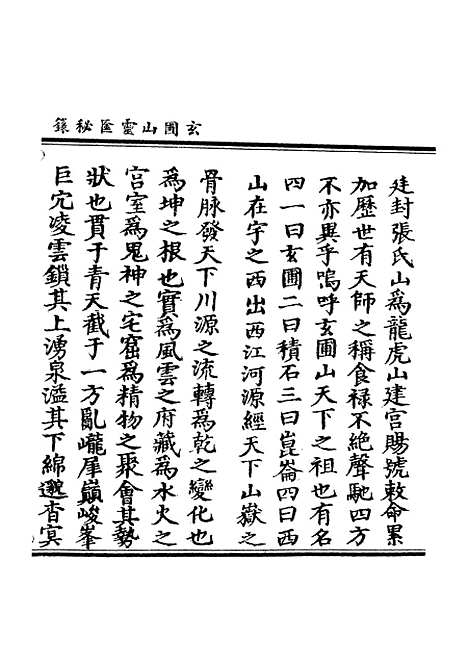 玄圃山靈匧秘籙
廷封張氏山爲龍虎山建宫賜號敕命累
加歷世有天師之稱食禄不絶聲馳四方
不亦異乎嗚呼玄圃山天下之祖也有名
四一曰玄圃二曰積石三曰崑崙四曰西
山在宇之西出西江河源經天下山嶽之
骨脉發天下川源之流轉爲乾之變化也
爲坤之根也實爲風雲之府藏爲水火之
宫室爲鬼神之宅窟爲精物之聚會其勢
狀也貫于青天截于一方亂巃犀巔峻峯
巨宂凌雲鎖其上湧泉溢其下綿邈杳冥